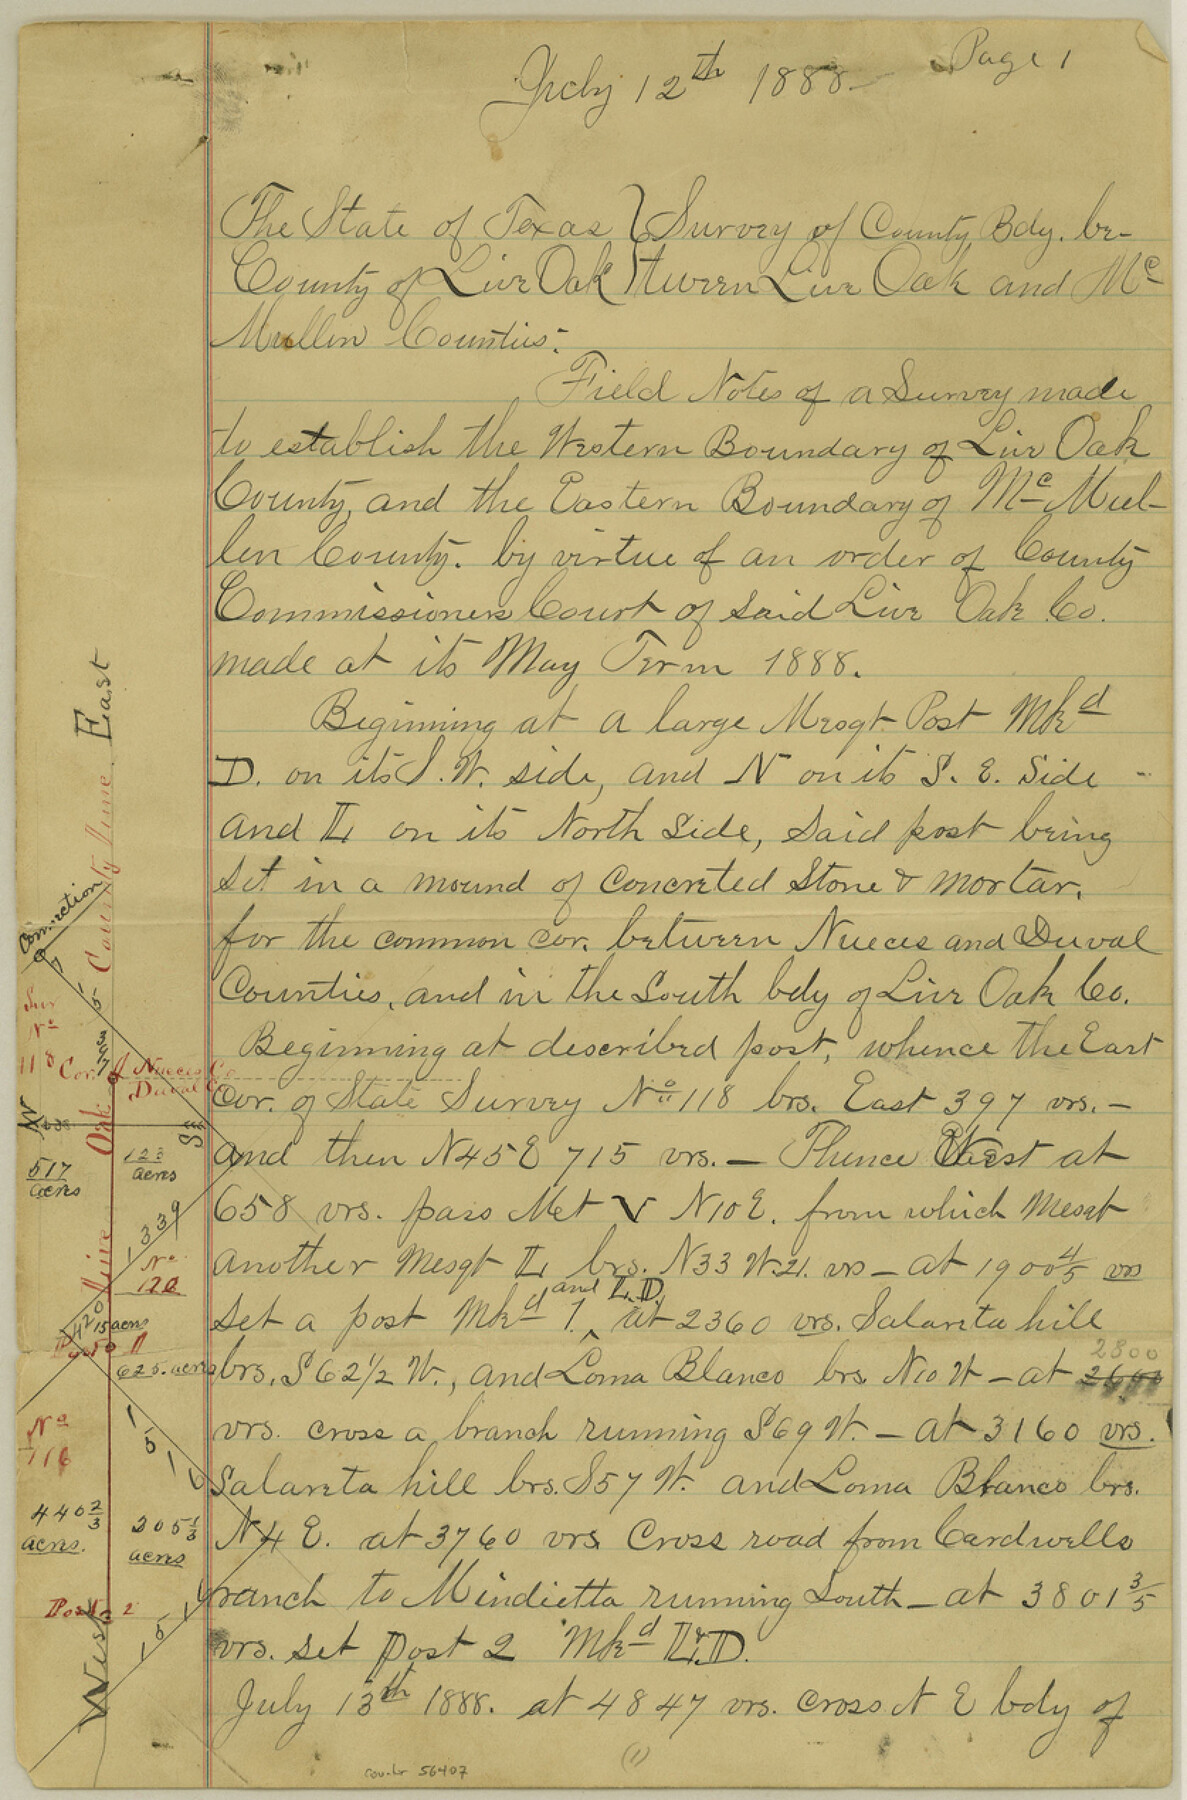 Page 1
July 12th 1888-
The State of Texas } Survey of County Bdy. be-
County of Live Oak } tween Live Oak and Mc
Mullen Counties:
Field Notes of a Survey made
to establish the Western Boundary of Live Oak
County, and the Eastern Boundary of Mc Mul-
len County. by virtue of an order of County
Commissioners Court of said Live Oak Co.
made at its May Term 1888.
Beginning at a large Mesqt Post Mkd
D. on its S.W. side, and N on its S.E. Side -
and L on its North Side, said post being
set in a mound of concreted Stone & mortar.
for the common cor. between Nueces and Duval
Counties, and in the South bdy of Live Oak Co.
Beginning at described post, whence the East
Cor. of State Survey No 118 brs. East 397 vrs. -
and then N45E 715 vrs. - Thence West at
658 vrs. pass Met V N10E. from which Mesqt
another Mesqt L brs. N33 W.21. vrs - at 1900 4/5 vrs
and L.D.
set a post Mkd 1. ^ at 2360 vrs. Salareta hill
2800
brs. S62 1/2 W., and Loma Blanco brs N10 W - at 2600
vrs. cross a branch running S69 W. - at 3160 vrs.
Salareta hill brs. S57 W. and Loma Blanco brs.
N4 E. at 3760 vrs Cross road from Cardwells
ranch to Mindietta running South - at 3801 3/5
vrs. set Post 2 Mkd L.D.
July 13th 1888. at 4847 vrs. cross N E bdy of
(1)
Counter 56407
East
County Line
Connection
715
Sur
No
118
397
Cor. of Nueces Co
Duval Co
Oak
N
S
517
acres
123
acres
1339
No
120
Live
420
15 acres
Post 1
625. acres
No
116
1510
440 2/3
acres.
205 1/3
acres
Post 2
151
West